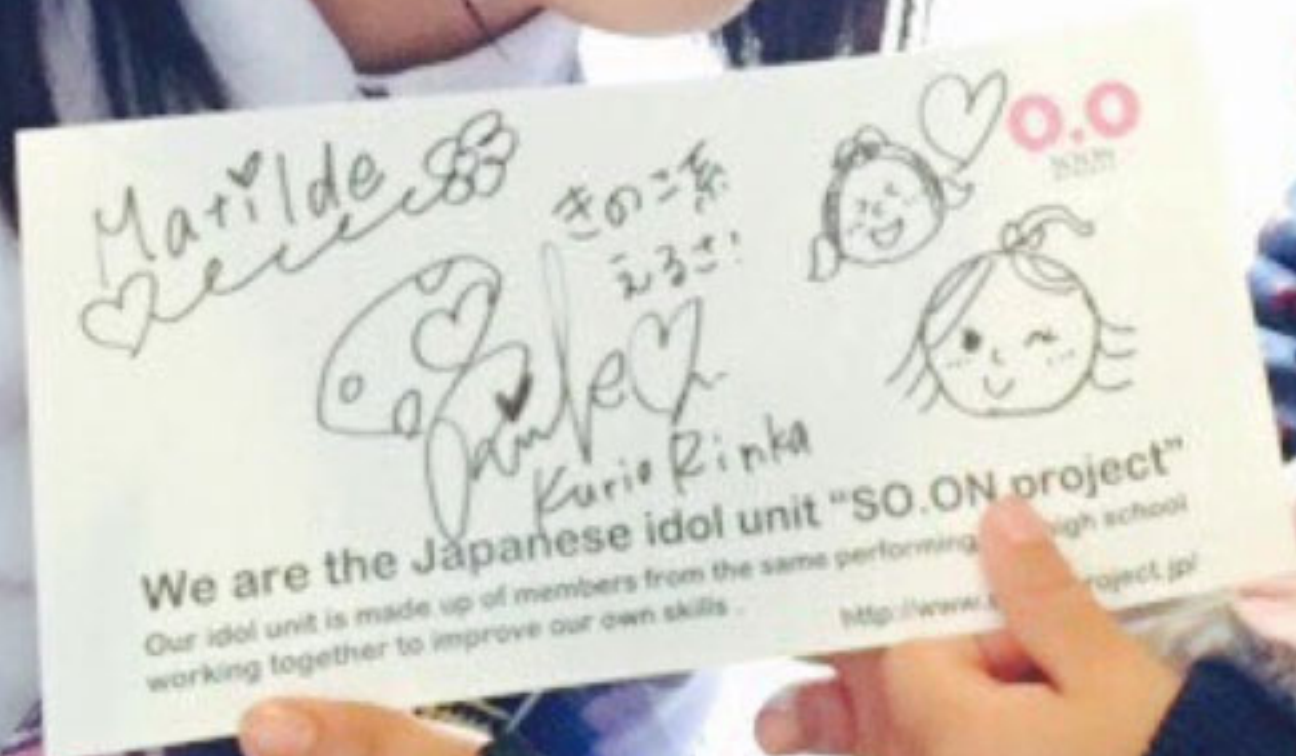 Matilde
O.O
きのこ系
えるさ!
Kurio Rinka
We are the Japanese idol unit “SO.ON project”
Our idol unit is made up of members from the same performing high school
working together to improve our own skills .
http://www. roject.jp/